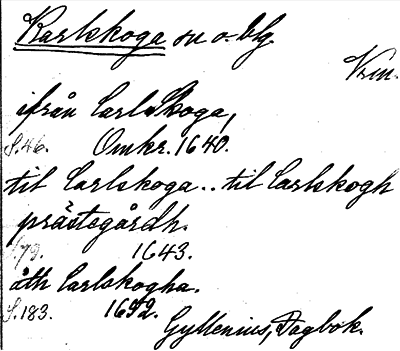 Karlskoga sn o. bg.
Vrm.
ifrån Carlskoga,
S. 46. Omkr. 1640.
til Carlskoga.. til Carlskogh
prästegårdh.
S. 79. 1643.
åth Carlskogha.
S. 183. 1652.
Gyllenius, Dagbok.